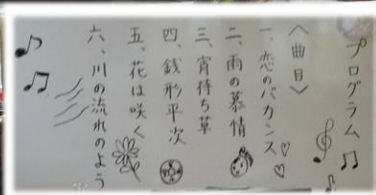 プログラム
〈曲目〉
一、恋のバカンス
二、雨の慕情
三、宵待ち草
四、銭形平次
五、花は咲く
六、川の流れのよう